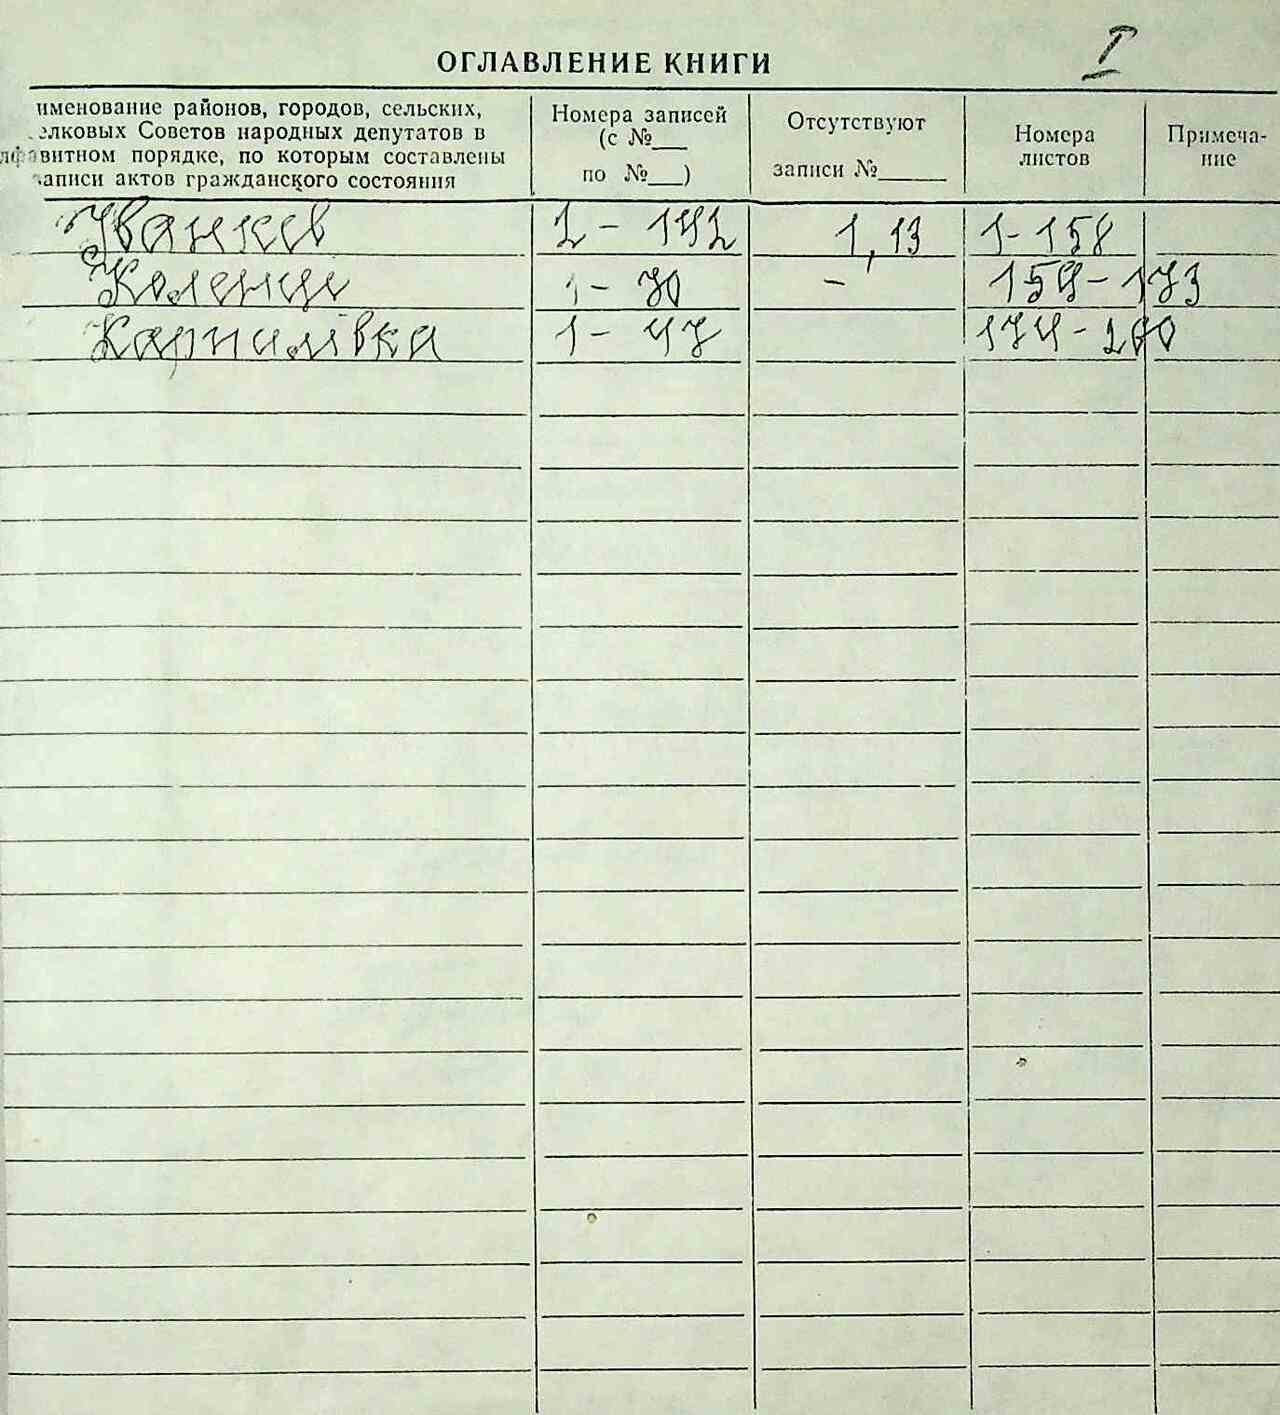 I
ОГЛАВЛЕНИЕ КНИГИ
именование районов, городов, сельских,
елковых Советов народных депутатов в
лфавитном порядке, по которым составлены
записи актов гражданского состояния
Номера записей
(с №___
по №___)
Отсутствуют
записи №______
Номера
листов
Примеча-
ние
Іванків 2 - 192 1, 13 1 - 158
Коленці 1 - 70 - 159 - 173
Карпилівка 1 - 47 174 - 200